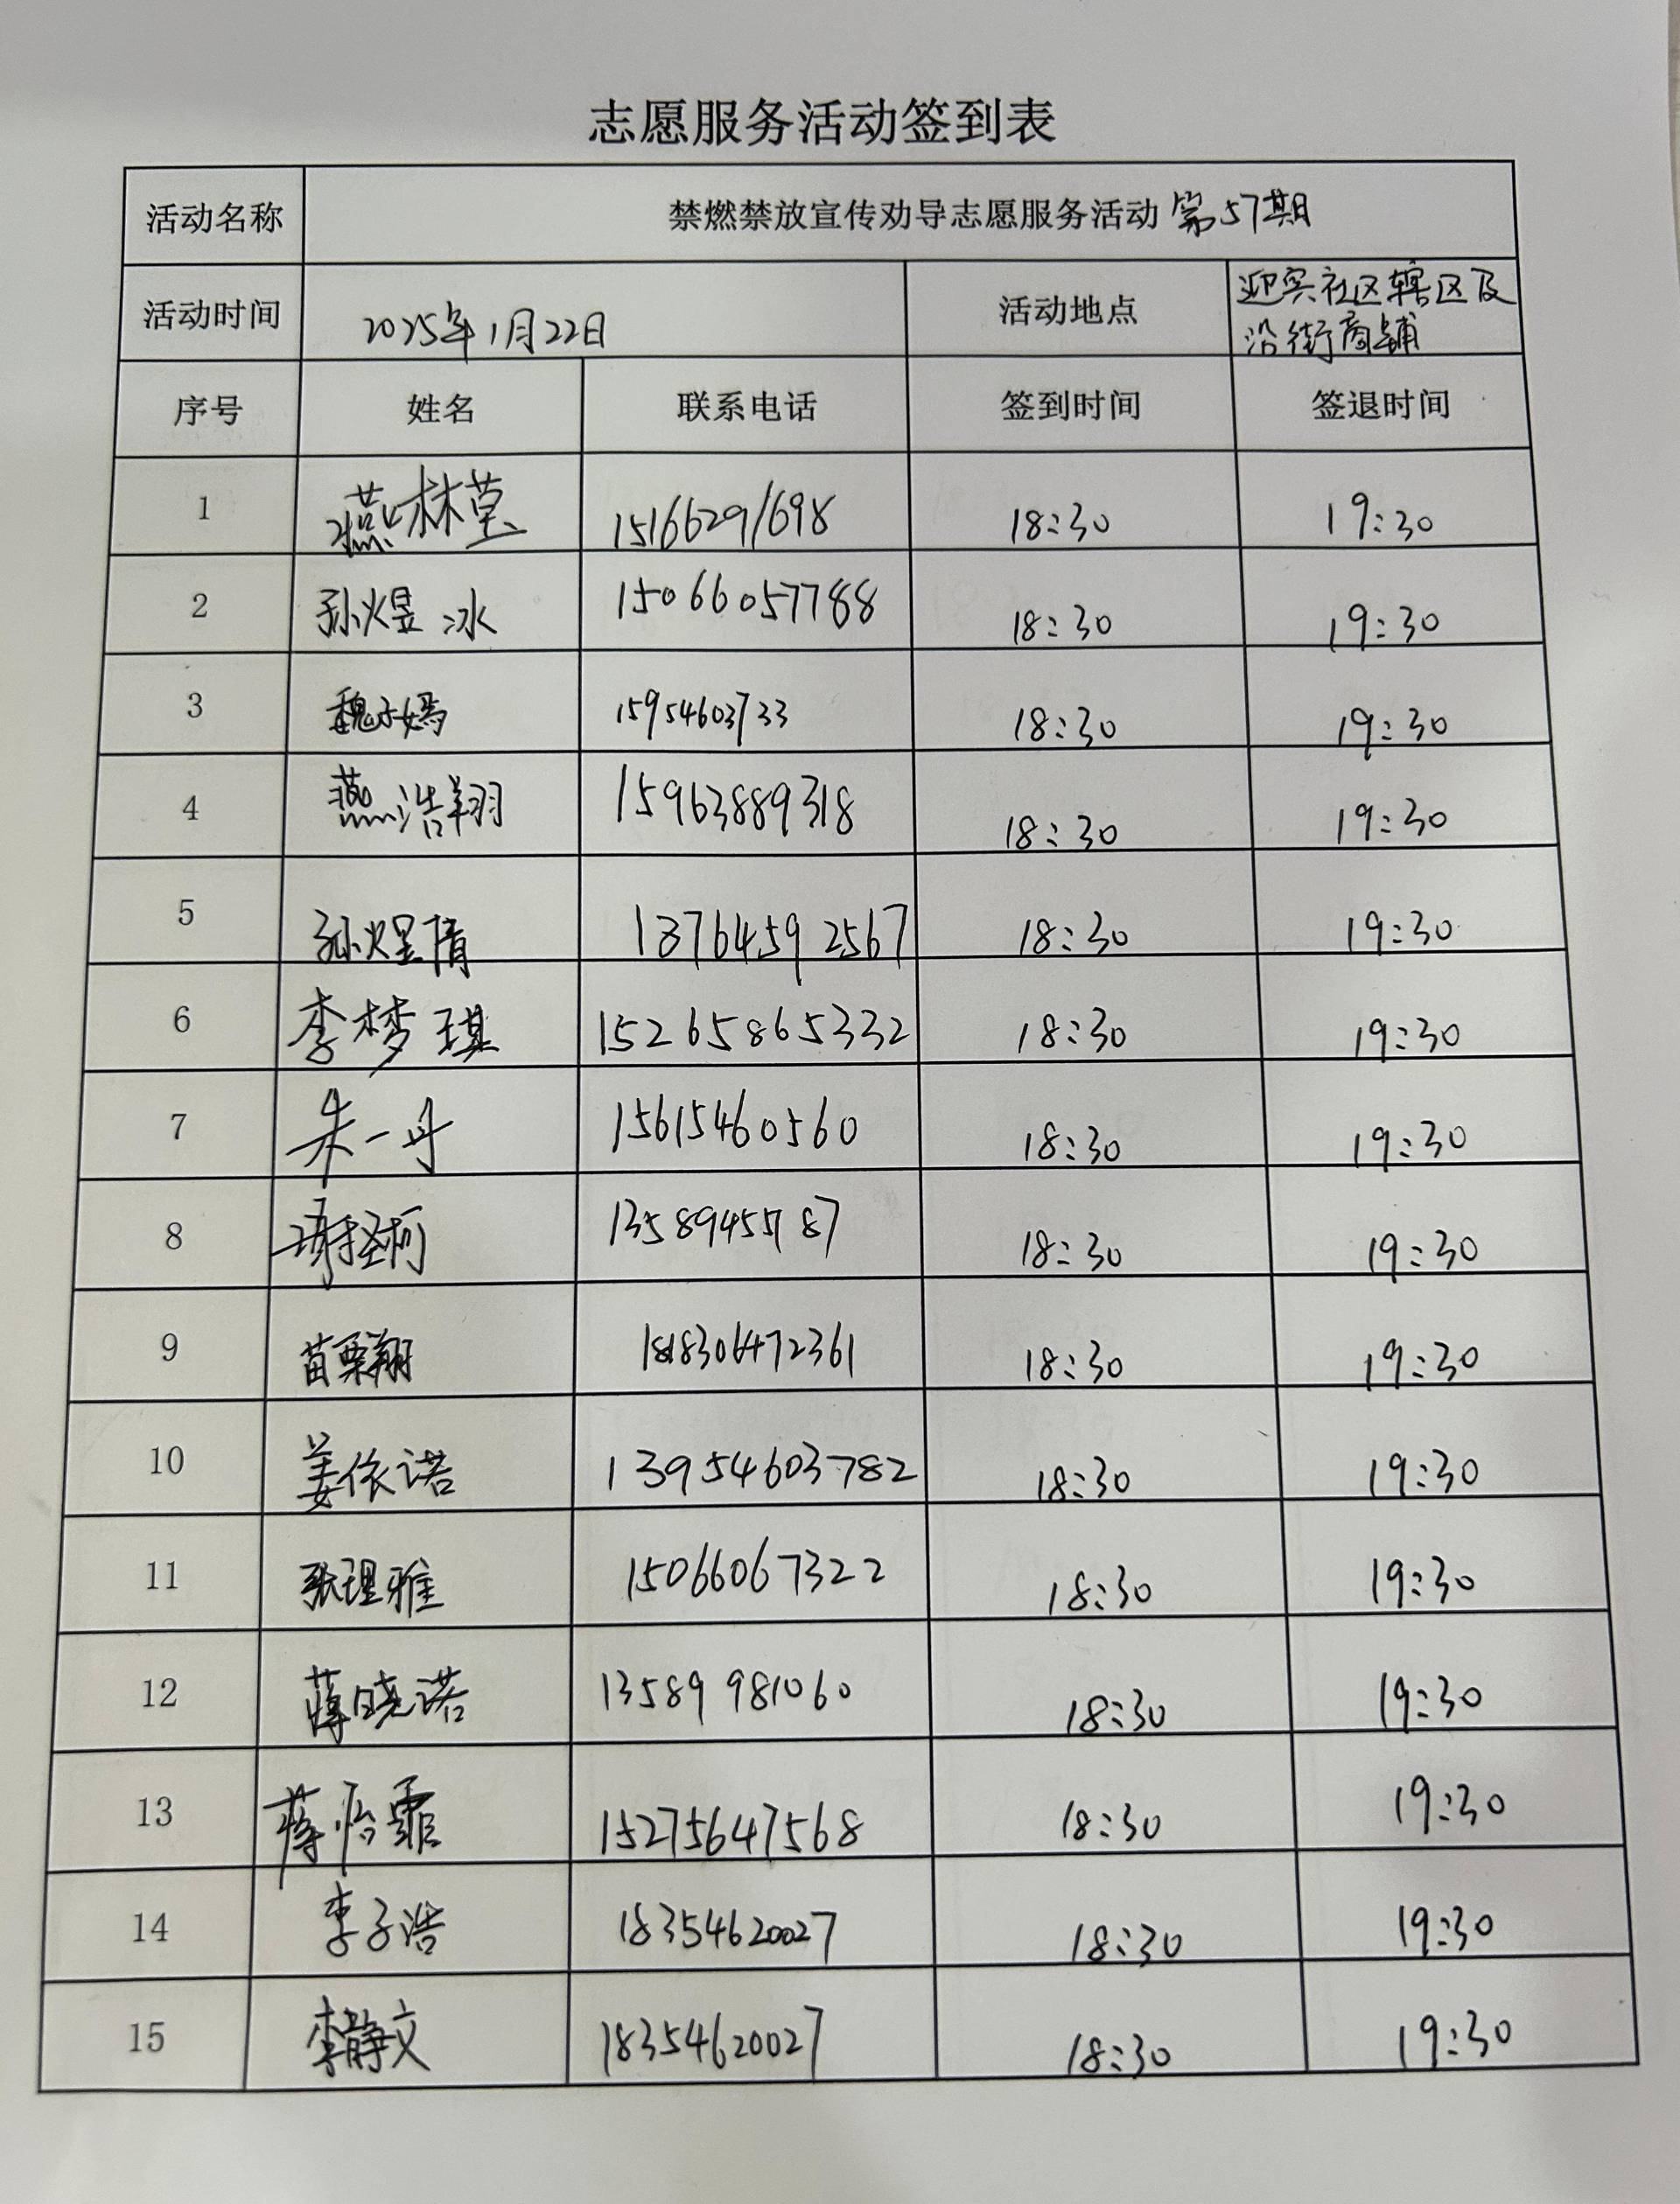 志愿服务活动签到表
活动名称 禁燃禁放宣传劝导志愿服务活动 第57期
活动时间 2025年1月22日 活动地点 迎宾社区辖区及
沿街商铺
序号 姓名 联系电话 签到时间 签退时间
1 燕林莫 15166291698 18:30 19:30
2 孙煜冰 15066057788 18:30 19:30
3 魏子嫣 15954603733 18:30 19:30
4 燕浩翔 15963889318 18:30 19:30
5 孙煜隋 18764592567 18:30 19:30
6 李梦琪 15265865332 18:30 19:30
7 朱一丹 15615460560 18:30 19:30
8 18:30 19:30
9 苗栗翔 18:30 19:30
10 姜依诺 13954603782 18:30 19:30
11 张理雅 15066067322 18:30 19:30
12 蒋晓诺 13589981060 18:30 19:30
13 蒋怡霏 15275647568 18:30 19:30
14 李子浩 18354620027 18:30 19:30
15 李静文 18354620027 18:30 19:30